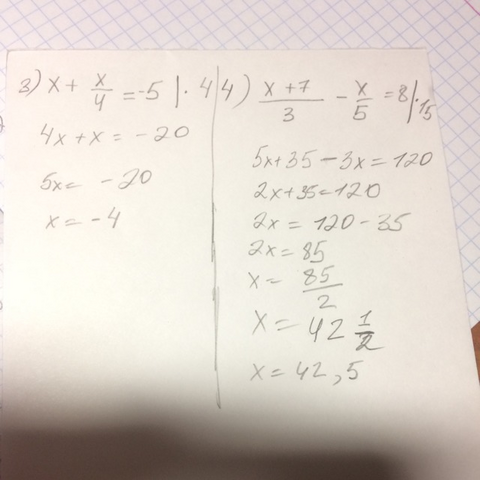 3) x + x/4 = -5 | · 4
4x + x = - 20
5x = - 20
x = - 4
4) x + 7/3 - x/5 = 8 | · 15
5x + 35 - 3x = 120
2x + 35 = 120
2x = 120 - 35
2x = 85
x = 85/2
x = 42 1/2
x = 42,5